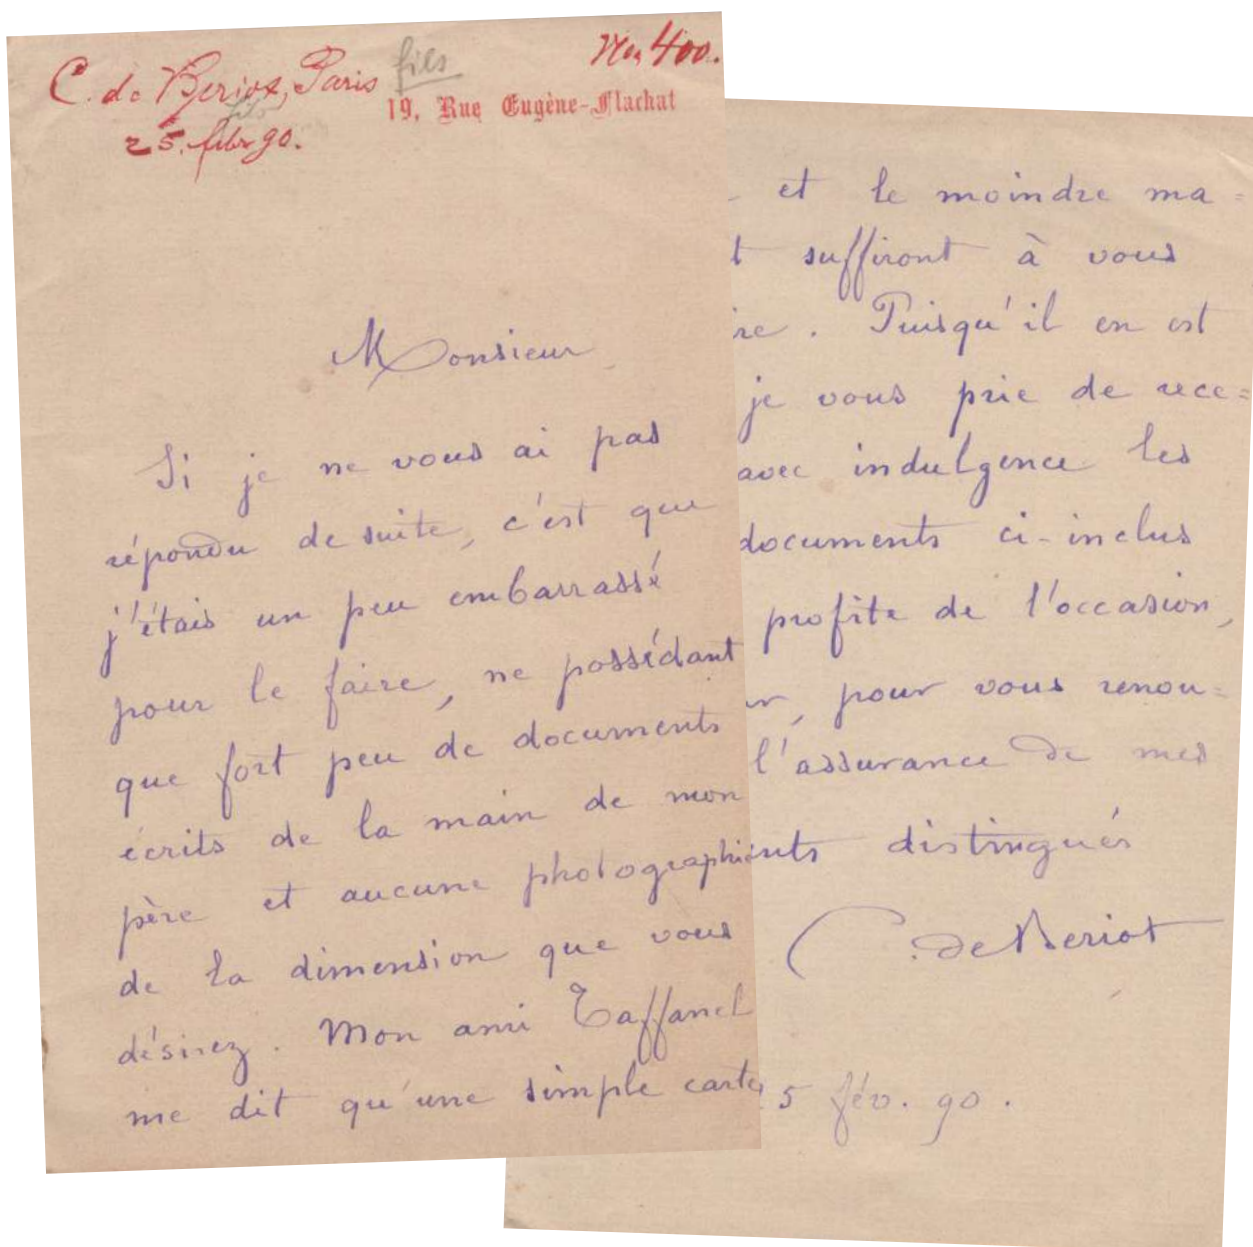 C. de Beriot, Paris fils No 400.
fils
25. febr 90.
19, Rue Eugène-Flachat
Monsieur
Si je ne vous ai pas
répondu de suite, c'est que
j'étais un peu embarrassé
pour le faire, ne possédant
que fort peu de documents
écrits de la main de mon
père et aucune photographie
de la dimension que vous
désirez. Mon ami Taffanel
me dit qu'une simple carte
et le moindre ma=
t suffiront à vous
ire. Puisqu'il en est
je vous prie de rece=
avec indulgence les
documents ci-inclus
profite de l'occasion,
ur, pour vous renou=
l'assurance de mes
ents distingués
C. de Beriot
5 fév. 90.